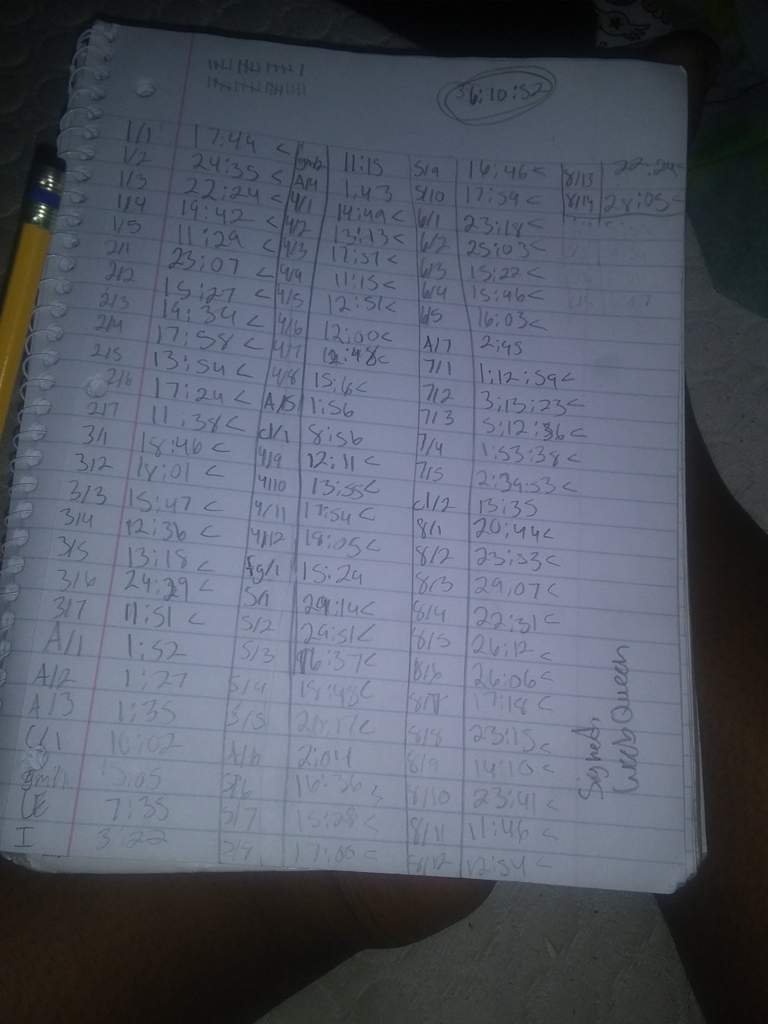 36:10:52
1/1 17:44 <
1/2 24:35 <
1/3 22:24 <
1/4 19:42 <
1/5 11:29 <
2/1 23:07 <
2/2 15:27 <
2/3 19:34 <
2/4 17:58 <
2/5 13:54 <
2/6 17:24 <
2/7 11:38 <
3/1 18:46 <
3/2 18:01 <
3/3 15:47 <
3/4 12:36 <
3/5 13:18 <
3/6 24:29 <
3/7 11:51 <
A/1 1:52
A/2 1:27
A/3 1:35
C/1 16:02
15:05
7:35
I 3:22
11:15
A/4 1:43
4/1 14:49 <
4/2 13:13 <
4/3 17:51 <
4/4 11:15 <
4/5 12:51 <
4/6 12:00 <
4/7 12:48 <
4/8 15:16 <
A/5 1:56
cl/1 8:56
4/9 12:11 <
4/10 13:55 <
4/11 17:54 <
4/12 18:05 <
15:24
5/1 29:14 <
5/2 29:51 <
5/3 16:37 <
5/4 15:48 <
5/5
A/6 2:04
5/6 16:36 <
5/7 15:28 <
5/8 17:00 <
5/9 16:46 <
5/10 17:59 <
6/1 23:18 <
6/2 25:03 <
6/3 15:22 <
6/4 15:46 <
6/5 16:03 <
A/7 2:45
7/1 1:12:59 <
7/2 3:13:23 <
7/3 5:12:36 <
7/4 1:53:38 <
7/5 2:39:53 <
cl/2 13:35
8/1 20:44 <
8/2 23:53 <
8/3 29:07 <
8/4 22:31 <
8/5 26:12 <
8/6 26:06 <
8/7 17:18 <
8/8 23:15 <
8/9 14:10 <
8/10 23:41 <
8/11 11:46 <
8/12 12:54 <
8/13 22:24 <
8/14 28:05 <
Signed,
Queen